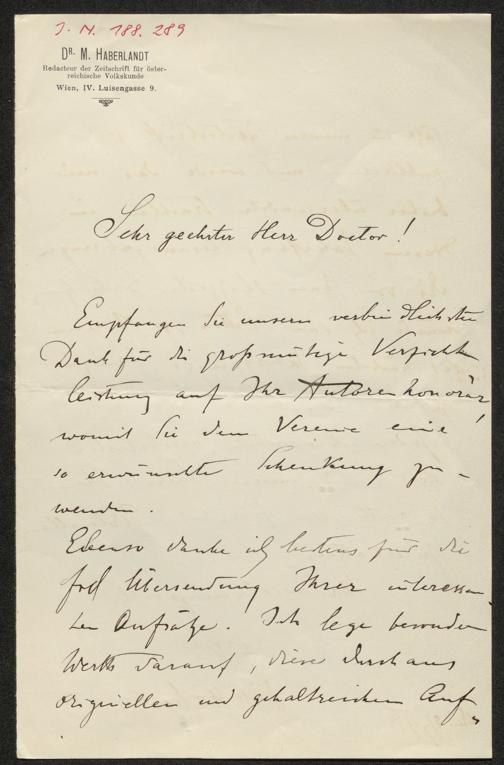 J. N. 188.289
DR. M. HABERLANDT
Redacteur der Zeitschrift für öster-
reichische Volkskunde
Wien, IV. Luisengasse 9.
Sehr geehrter Herr Doctor!
Empfangen Sie unsern verbindlichsten
Dank für die großmütige Verzicht-
leistung auf Ihr Autorenhonorar,
womit Sie dem Vereine eine
so erwünschte Schenkung zu-
wenden.
Ebenso danke ich bestens für die
frdl Übersendung Ihrer interessan-
ten Aufsätze. Ich lege besondern
Werth darauf, diese durchaus
originellen und gehaltreichen Auf-